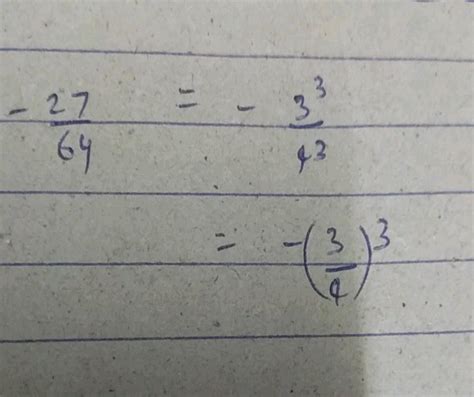 - 27/64 = - 3³/4³
= -(3/4)³